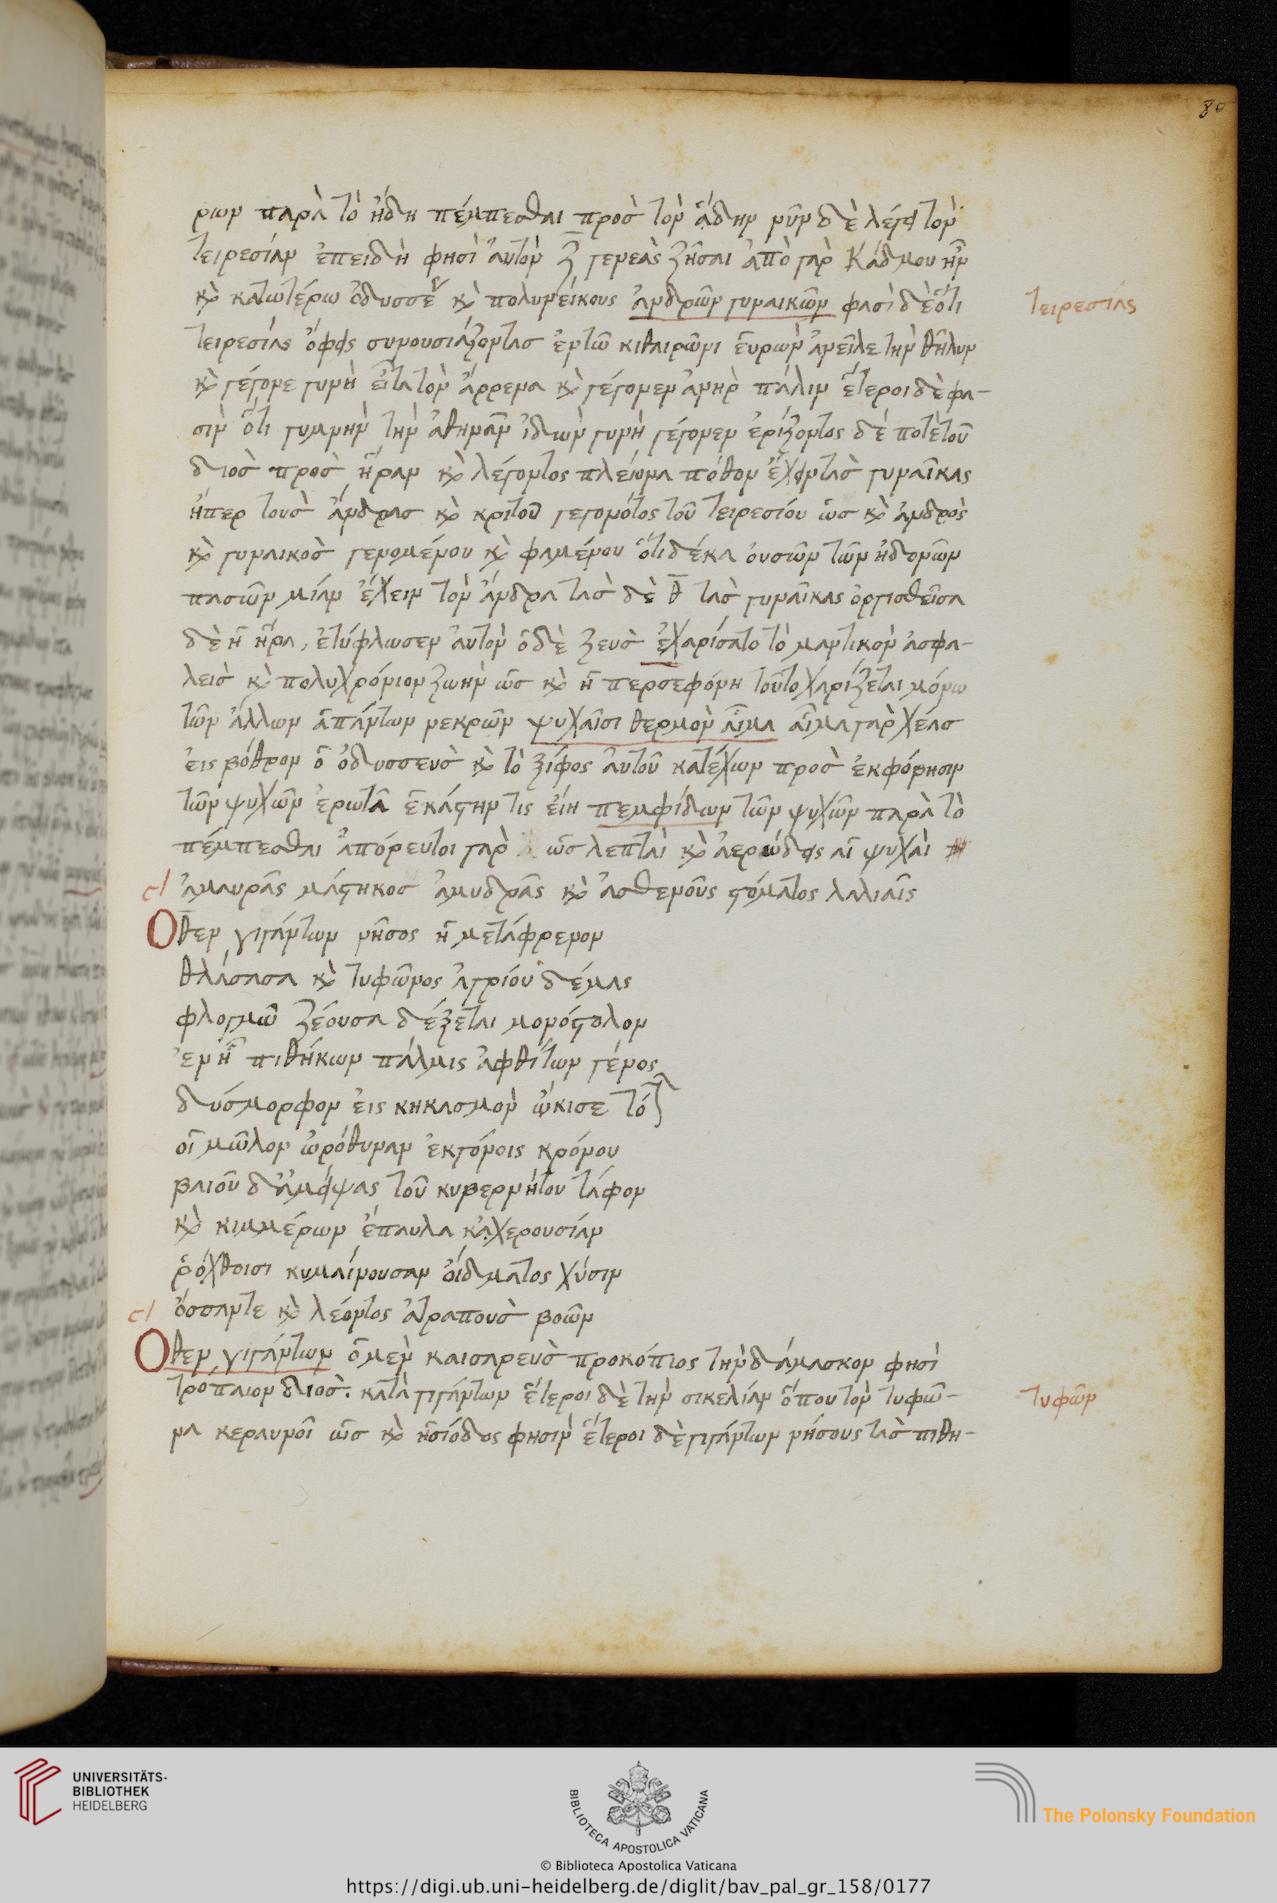 80
ρων παρὰ τὸ ἤδη πέμπεσθαι πρὸσ τὸν ἅδην νῦν δὲ λέγει τὸν
τειρεσίαν ἐπειδὴ φησὶ ἀυτὸν ζ̅ γενεὰς ζῆσαι ἀπὸ γὰρ Κάδμου ἦν
κὶ κατωτέρω ὀδυσσέως κὶ πολυνείκους ἀνδρῶν γυναικῶν φασὶ δὲ ὅτι
τειρεσίας
τειρεσίας ὄφεις συνουσιάζοντασ ἐν τῶ κιθαιρῶνι ἑυρὼν ἀνεῖλε τὴν θῆλυν
κὶ γέγονε γυνὴ εἶτα τὸν ἄρρενα κὶ γέγονεν ἀνὴρ πάλιν ἕτεροι δὲ φα-
σὶν ὅτι γυμνὴν τὴν ἀθηνᾶν ἰδὼν γυνὴ γέγονεν ἐρίζοντος δέ ποτὲ τοῦ
διοσ πρὸσ ἥραν κὶ λέγοντος πλείονα πόθον ἔχειν τὰσ γυναῖκας
ἤπερ τοὺσ ἄνδρασ κὶ κριτοῦ γεγονότος τοῦ τειρεσίου ὡσ κὶ ἀνδρὸς
κὶ γυναικὸσ γενομένου κὶ φαμένου ὅτι δέκα ὀυσῶν τῶν ἡδονῶν
πασῶν μίαν ἔχειν τὸν ἄνδρα τὰσ δὲ θ̅ τὰσ γυναῖκας ὀργισθεῖσα
δὲ ἡ ἥρα, ἐτύφλωσεν ἀυτὸν ὁ δὲ ζευσ ἐχαρίσατο τὸ μαντικὸν ἀσφα-
λεὶσ κὶ πολυχρόνιον ζωὴν ὡσ κὶ ἡ περσεφόνη τοῦτο χαρίζεται μόνω
τῶν ἄλλων ἁπάντων νεκρῶν ψυχαῖσι θερμὸν αἷμα αἷμα γὰρ χέασ
ἐις βόθρον ὁ ὀδυσσευσ κὶ τὸ ξίφος ἀυτοῦ κατέχων πρὸσ ἐκφόρησιν
τῶν ψυχῶν ἐρωτᾶ ἑκάστην τις ἐίη πεμφίδων τῶν ψυχῶν παρὰ τὸ
πέμπεσθαι ἀπόρευτοι γὰρ ὡσ λεπταὶ κὶ ἀερώδεις αἱ ψυχὰι
ἀμαυρᾶς μάστηκος ἀμυδρᾶς κὶ ἀσθενοῦς στόματος λαλιαῖς
Ὅθεν γιγάντων νῆσος ἡ μετάφρενον
θλάσασα κὶ τυφῶνος ἀγρίου δέμας
φλογμῶ ζέουσα δέξεται μονόστολον
ἐν ἧ πιθήκων πάλμις ἀφθίτων γένος
δύσμορφον ἐις κηκασμὸν ὤκισε τόσων
οἳ μῶλον ὠρόθυναν ἐκγόνοις κρόνου
βαιοῦ δ᾽ ἀμείψας τοῦ κυβερνήτου τάφον
κὶ κιμμέρων ἔπαυλα κἀχερουσίαν
ῥόχθοισι κυμαίνουσαν οἴδματος χύσιν
ὄσσαν τε κὶ λέοντος ἀτραποὺσ βοῶν
Ὅθεν γιγάντων ὁ μὲν καισαρεὺσ προκόπιος τὴν δάμασκον φησὶ
τρόπαιον διοσ. κατὰ γιγάντων ἕτεροι δὲ τὴν σικελίαν ὅπου τὸν τυφῶ-
τυφῶν
να κεραυνοῖ ὡσ κὶ ἡσίοδος φησὶν ἕτεροι δὲ γιγάντων νήσους τὰσ πιθη-
UNIVERSITÄTS-
BIBLIOTHEK
HEIDELBERG
BIBLIOTECA APOSTOLICA VATICANA
The Polonsky Foundation
© Biblioteca Apostolica Vaticana
https://digi.ub.uni-heidelberg.de/diglit/bav_pal_gr_158/0177